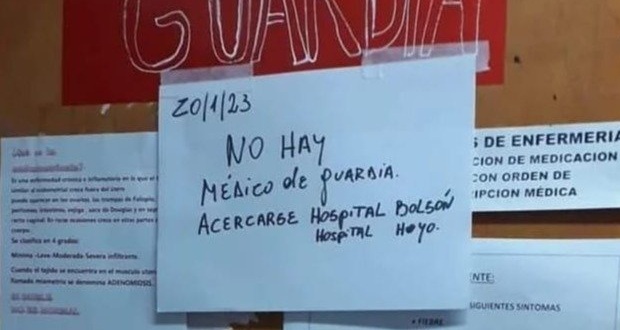 GUARDIA
20/1/23
NO HAY
MÉDICO de GUARDIA.
ACERCARSE HOSPITAL BOLSÓN
HOSPITAL HOYO.
Es una enfermedad crónica e inflamatoria en la que el
similar al endometrial crece fuera del útero
puede aparecer en los ovarios, las trompas de Falopio,
peritoneo, intestinos, vejiga, saco de Douglas y en sep
recto vaginal. En raras ocasiones crece en otras partes
cuerpo.
Se clasifica en 4 grados:
Mínima -Leve-Moderada-Severa infiltrante.
Cuando el tejido se encuentra en el musculo uteri
llamado miometrio se denomina ADENOMIOSIS.
S DE ENFERMERIA
CION DE MEDICACION
CON ORDEN DE
IPCION MÉDICA
NTE:
SIGUIENTES SINTOMAS
• FIEBRE